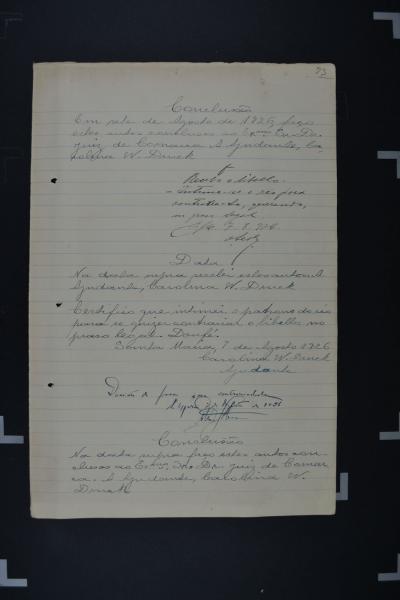 Conclusão
Em sete de Agosto de 1926 faço
estes autos conclusos ao Exmo. Snr. Dr.
juiz de Comarca. A Ajudante, Ca-
rolina W. Druck
Recebo o libello.
Intime-se o réo para
contrarial-o, querendo,
no prazo legal
7. 8. 926
Data
Na data supra recebi estes autos. A
Ajudante, Carolina W. Druck
Certifico que intimei o patrono do réo
para se quizer contrariar o libello no
praso legal. Doufé.
Santa Maria, 7 de Agosto 1926
Carolina W. Druck
Ajudante
de 1926
Conclusão
Na data supra faço estes autos con-
clusos ao Exmo. Snr. Dr. juiz de Comar-
ca. A Ajudante, Carolina W.
Druck